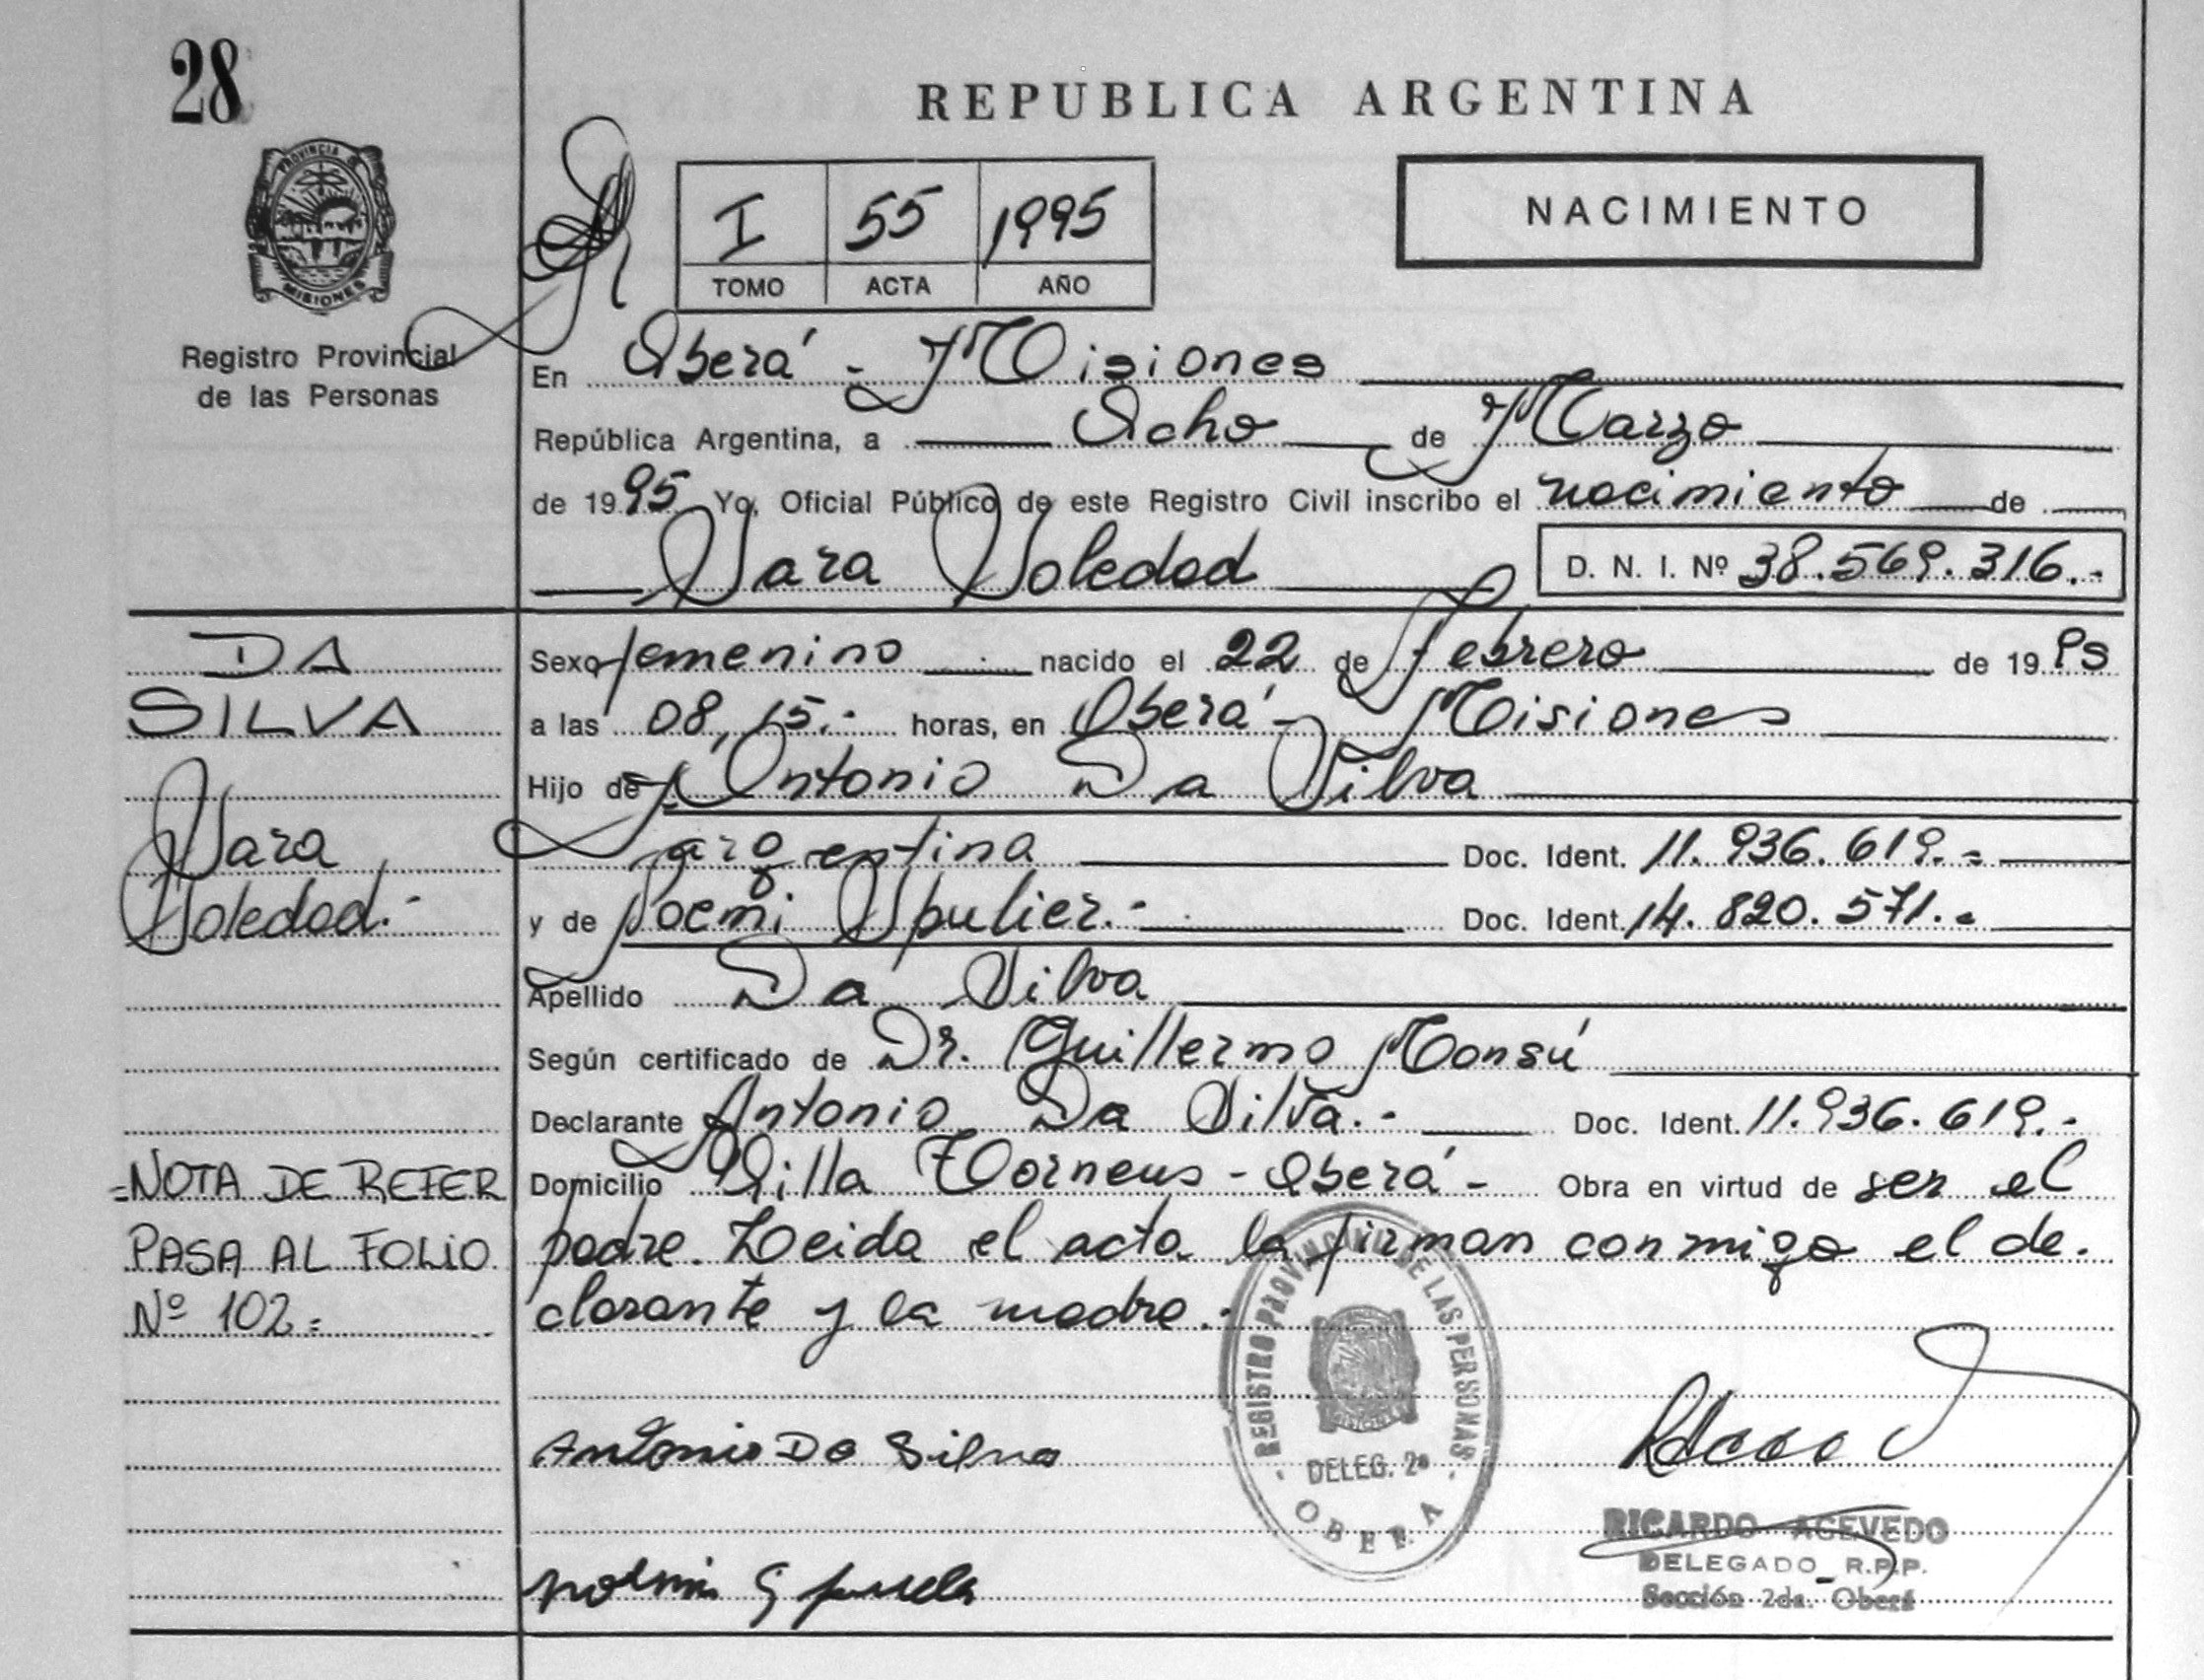 28
REPUBLICA ARGENTINA
PROVINCIA DE
MISIONES
Registro Provincial
de las Personas
I 55 1995
TOMO ACTA AÑO
NACIMIENTO
En Oberá - Misiones
República Argentina, a Ocho de Marzo
de 1995 Yo, Oficial Público de este Registro Civil inscribo el nacimiento de
Sara Soledad D. N. I. Nº 38.569.316.-
DA
SILVA
Sara
Soledad.-
Sexo femenino nacido el 22 de Febrero de 1995
a las 08,15.- horas, en Oberá - Misiones
Hijo de Antonio Da Silva
argentina Doc. Ident. 11.936.619.-
y de Noemi Spulier.- Doc. Ident. 14.820.571.-
Apellido Da Silva
Según certificado de Dr. Guillermo Monsú
Declarante Antonio Da Silva.- Doc. Ident. 11.936.619.-
Domicilio Villa - Oberá - Obra en virtud de ser el
padre. Leida el acta la firman conmigo el de-
clarante y la madre.-
=NOTA DE REFER
PASA AL FOLIO
Nº 102=
Antonio Da Silva
REGISTRO PROVINCIAL DE LAS PERSONAS
DELEG. 2ª
OBERA
RICARDO ACEVEDO
DELEGADO R.P.P.
Sección 2da. Oberá